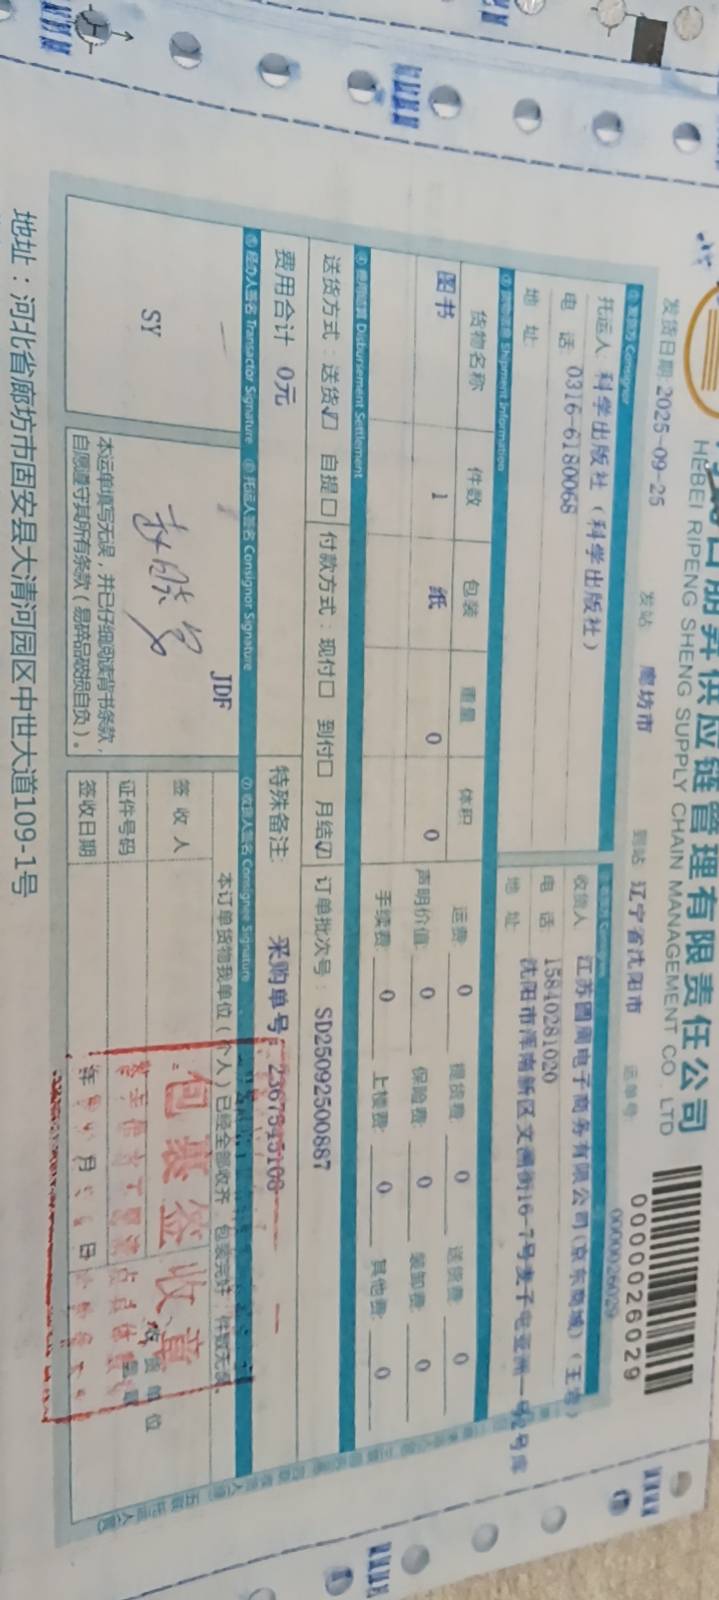 日朋昇供应链管理有限责任公司
HEBEI RIPENG SHENG SUPPLY CHAIN MANAGEMENT CO., LTD
0000026029
发货日期:2025-09-25 发站: 廊坊市 到站: 辽宁省沈阳市 运单号: 0000026029
① 发货方 Consignor
托运人: 科学出版社（科学出版社）
电 话: 0316-6180068
地 址:
收货人: 江苏圆周电子商务有限公司(京东商城)
电 话: 15840281020
地 址: 沈阳市浑南新区文溯街16-7号
Shipment Information
货物名称 件数 包装 重量 体积
图书 1 纸 0 0
运费: 0 提货费: 0 送货费: 0
声明价值: 0 保险费: 0 装卸费: 0
手续费: 0 上楼费: 0 其他费: 0
④ 费用结算 Disbursement Settlement
送货方式：送货☑ 自提☐ 付款方式：现付☐ 到付☐ 月结☑ 订单批次号： SD25092500887
费用合计 0元 特殊备注: 采购单号:2367345108
⑤ 经办人签名 Transactor Signature ⑥ 托运人签名 Consignor Signature ⑦ 收货人签名 Consignee Signature
SY
JDF
本运单填写无误，并已仔细阅读背书条款，
自愿遵守其所有条款（易碎品破损自负）。
本订单货物我单位（个人）已经全部收齐，包装完好，件数无误。
签 收 人
证件号码
签收日期 年 月 日
包裹签收章
地址：河北省廊坊市固安县大清河园区中世大道109-1号